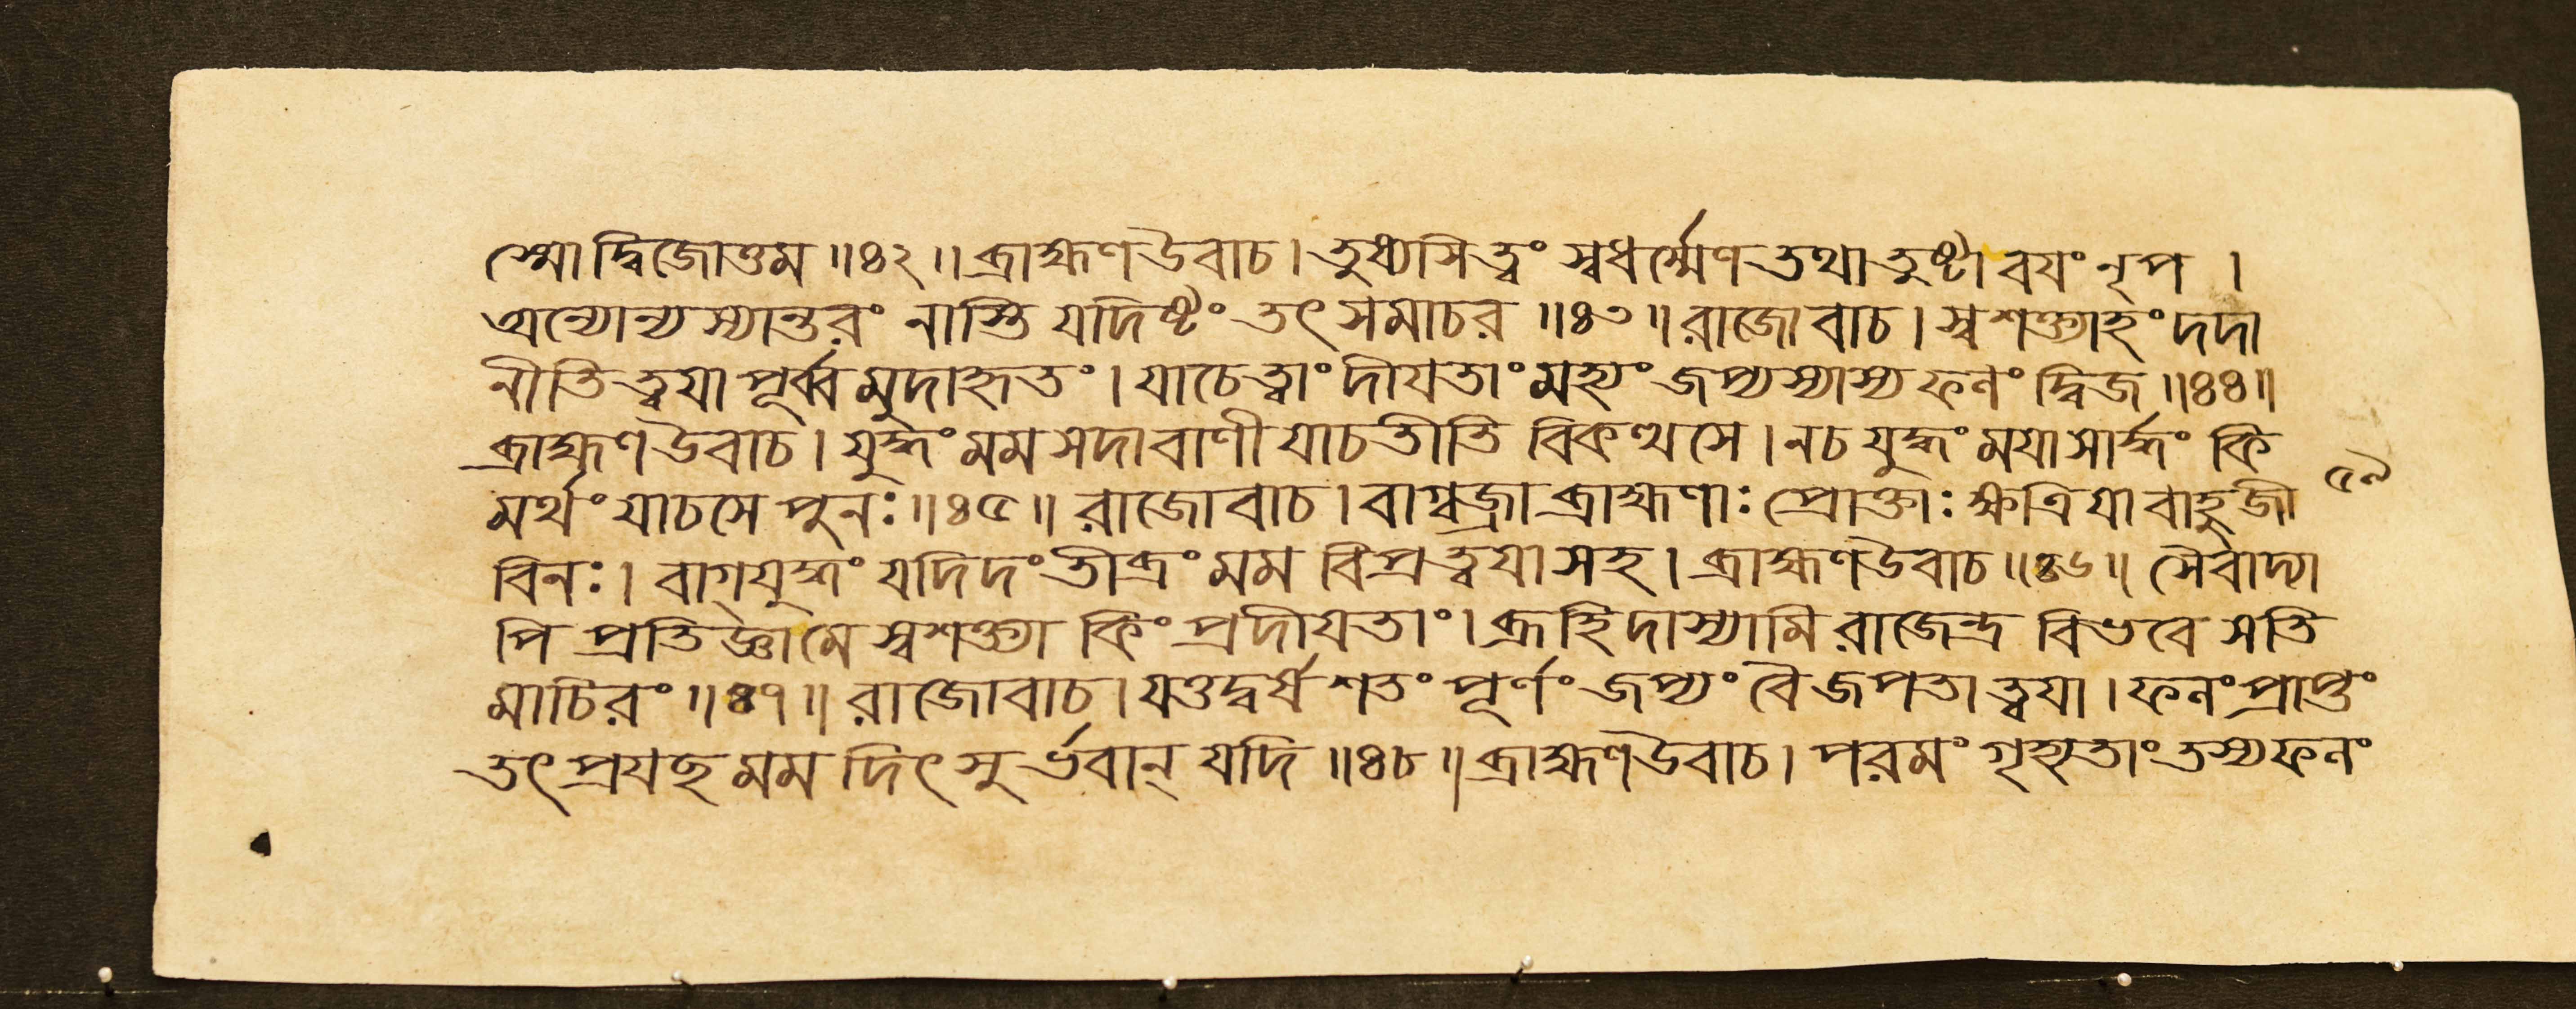 স্মো দ্বিজোত্তম ॥৪২॥ ব্রাহ্মণ উবাচ । তুষ্যসি ত্বং স্বধর্ম্মেণ তথা তুষ্টা বযং নৃপ ।
অন্যোন্যস্যান্তরং নাস্তি যদিষ্টং তৎ সমাচর ॥৪৩॥ রাজোবাচ । স্বশক্ত্যাহং দদা
নীতি ত্বযা পূর্ব্বমুদাহৃতং । যাচে ত্বাং দীযতাং মহ্যং জপ্যস্যাস্য ফলং দ্বিজ ॥৪৪॥
ব্রাহ্মণ উবাচ । যুদ্ধং মম সদা বাণী যাচতীতি বিকত্থসে । নচ যুদ্ধং মযা সার্দ্ধং কি
মর্থং যাচসে পুনঃ ॥৪৫॥ রাজোবাচ । বাগ্বজ্রা ব্রাহ্মণাঃ প্রোক্তাঃ ক্ষত্রিযা বাহুজী
বিনঃ । বাগ্যুদ্ধং যদিদং তীব্রং মম বিপ্র ত্বযা সহ । ব্রাহ্মণ উবাচ ॥৪৬॥ সৈবাদ্যা
পি প্রতিজ্ঞা মে স্বশক্ত্যা কিং প্রদীযতাং । ব্রূহি দাস্যামি রাজেন্দ্র বিভবে সতি
মাচিরং ॥৪৭॥ রাজোবাচ । যত্তদ্বর্ষশতং পূর্ণং জপ্যং বৈ জপতা ত্বযা । ফলং প্রাপ্তং
তৎ প্রযচ্ছ মম দিৎসুর্ভবান্ যদি ॥৪৮॥ ব্রাহ্মণ উবাচ । পরমং গৃহ্যতাং তস্য ফলং
৫৯